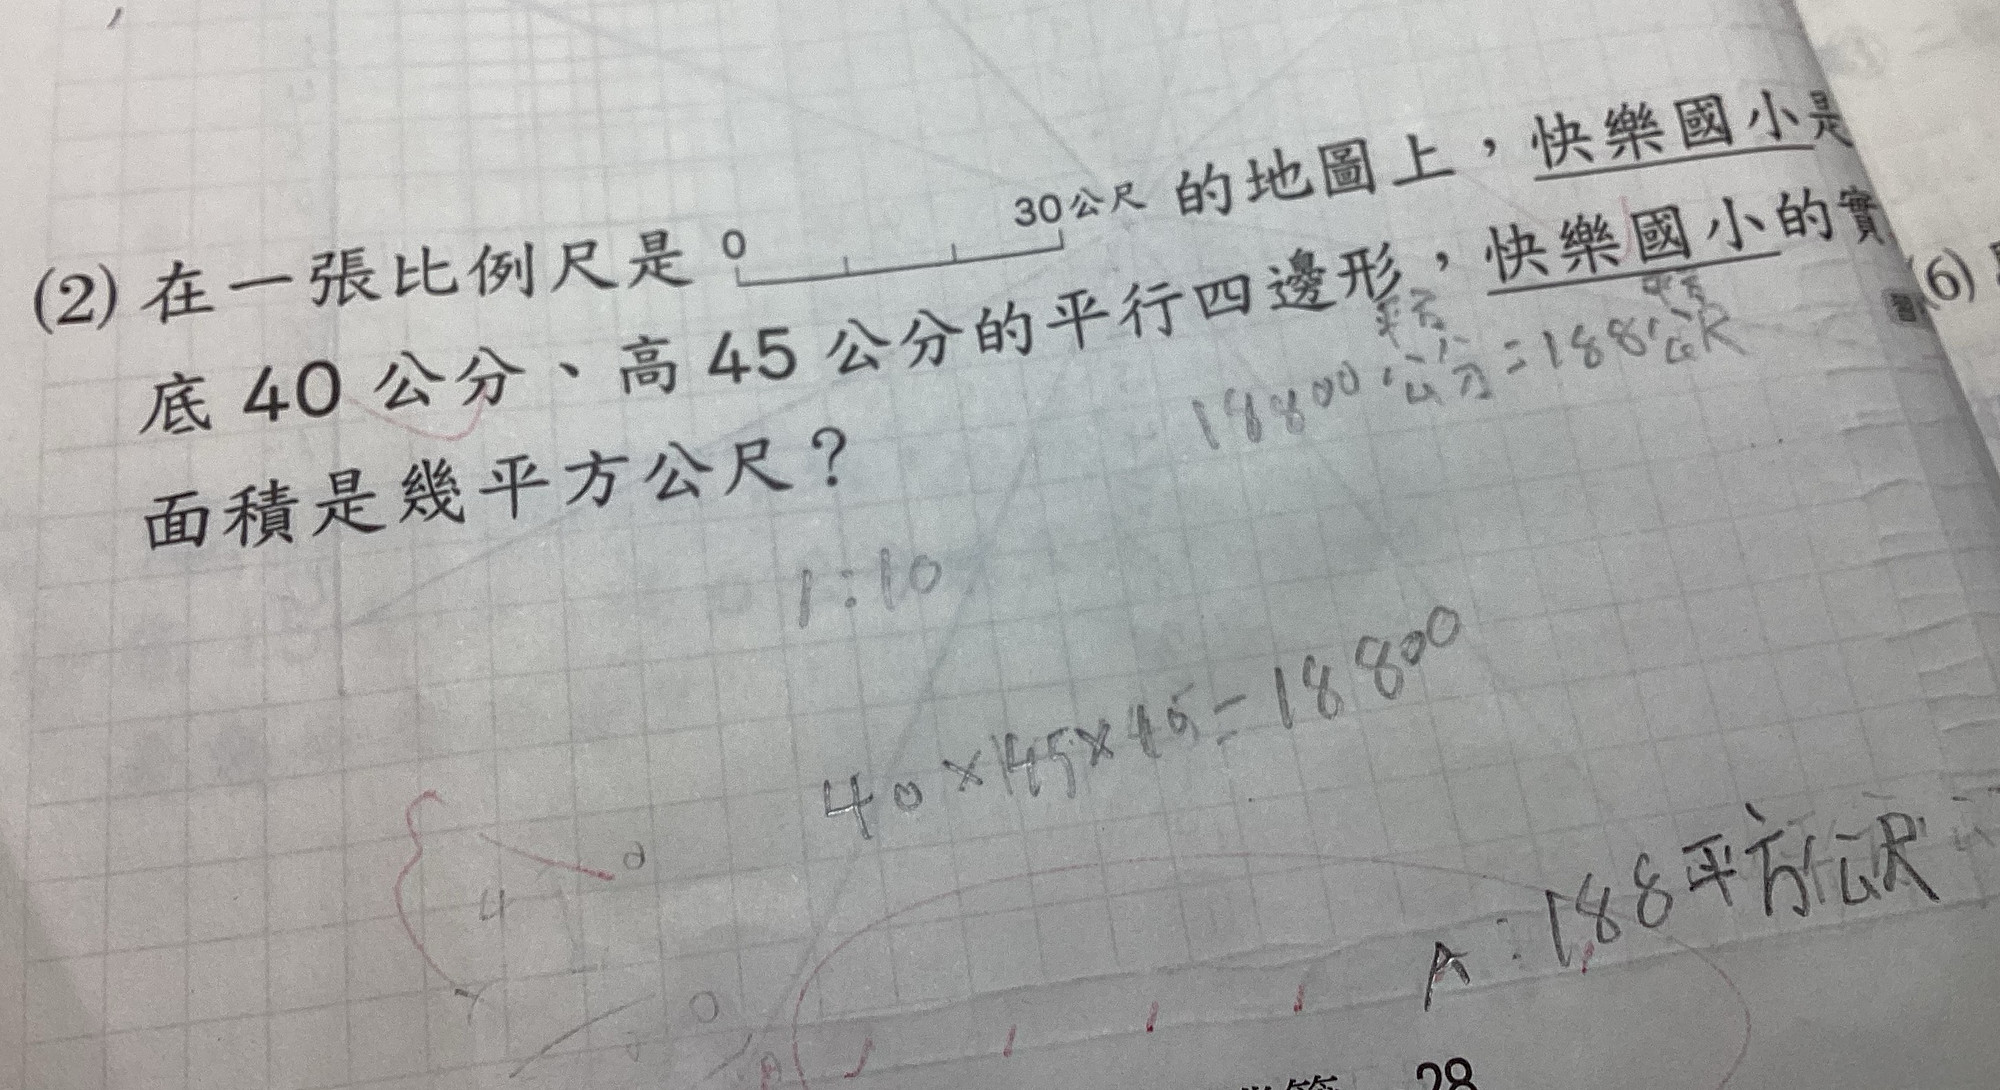 (2) 在一張比例尺是 0 30公尺 的地圖上，快樂國小是
底 40 公分、高 45 公分的平行四邊形，快樂國小的實
面積是幾平方公尺？
平方 平方
18800公分=188公尺
1:10
40×45×
=18800
A:188平方公尺
(6)
28